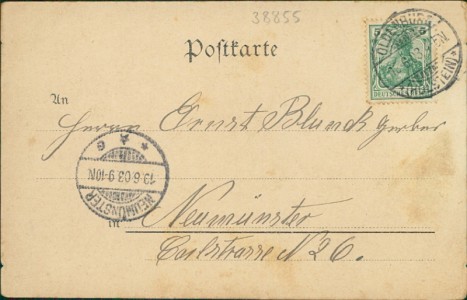 38855
Postkarte
OLDENBURG
(HOLSTEIN)
5
An
Herrn Ernst Blunck Gerber
* A c
13.6.03.9-10N
NEUMÜNSTER
in Neumünster
Carlstrasse N 26.